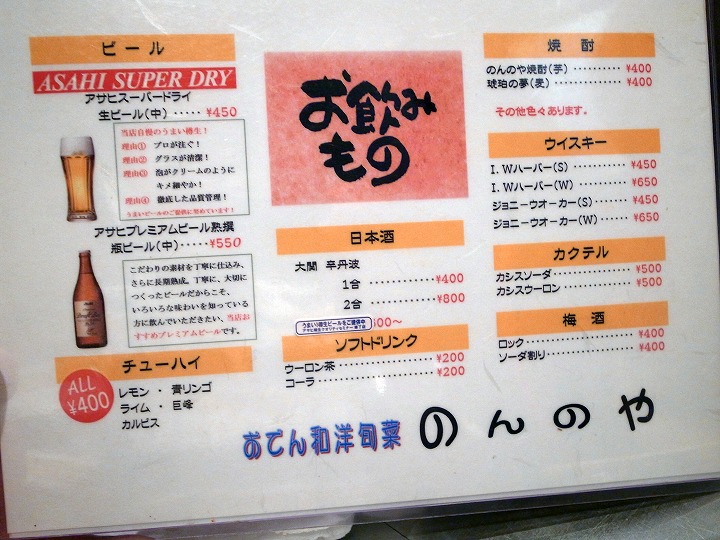 ビール
ASAHI SUPER DRY
アサヒスーパードライ
生ビール(中) ····· ¥450
当店自慢のうまい樽生！
理由① プロが注ぐ！
理由② グラスが清潔！
理由③ 泡がクリームのように
キメ細やか！
理由④ 徹底した品質管理！
うまいビールのご提供に努めています！
アサヒプレミアムビール熟撰
瓶ビール(中) ····· ¥550
こだわりの素材を丁寧に仕込み、
さらに長期熟成。丁寧に、大切に
つくったビールだからこそ、
いろいろな味わいを知っている
方に飲んでいただきたい、当店お
すすめプレミアムビールです。
チューハイ
ALL
¥400
レモン ・ 青リンゴ
ライム ・ 巨峰
カルピス
お飲み
もの
日本酒
大関 辛丹波
1合 ············ ¥400
2合 ············ ¥800
00～
うまい!樽生ビールをご提供中
ソフトドリンク
ウーロン茶 ············ ¥200
コーラ ············ ¥200
焼酎
のんのや焼酎(芋) ·········· ¥400
琥珀の夢(麦) ············ ¥400
その他色々あります。
ウイスキー
I.Wハーバー(S) ·········· ¥450
I.Wハーバー(W) ·········· ¥650
ジョニーウオーカー(S) ······ ¥450
ジョニーウオーカー(W) ······ ¥650
カクテル
カシスソーダ ············ ¥500
カシスウーロン ············ ¥500
梅酒
ロック ············ ¥400
ソーダ割り ············ ¥400
おでん和洋旬菜 のんのや